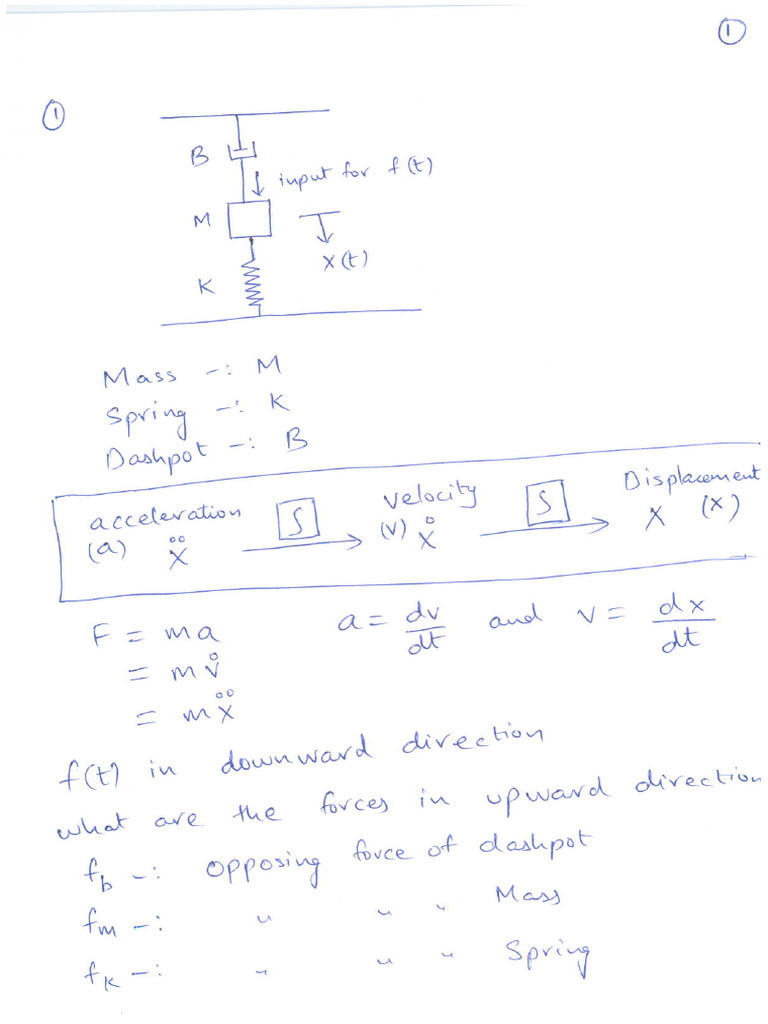 ①
①
B
input for f(t)
M
x(t)
K
Mass -: M
Spring -: K
Dashpot -: B
acceleration ∫ velocity ∫ Displacement
(a) ẍ (v) ẋ x (x)
F = ma a = dv/dt and v = dx/dt
= m v̇
= m ẍ
f(t) in downward direction
what are the forces in upward direction
f_b -: opposing force of dashpot
f_m -: " " " Mass
f_k -: " " " Spring